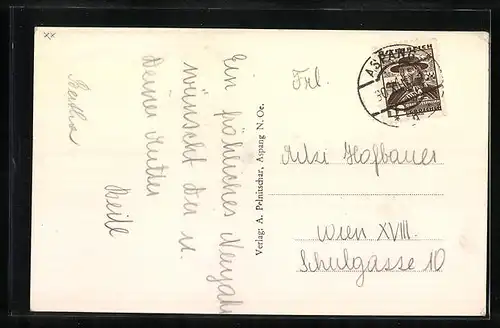 xx
Ein fröhliches Neujahr
wünscht dir u.
deiner Mutter
Bertha
Verlag: A. Pelnitschar, Aspang N. Oe.
ASPANG
ÖSTERREICH
Frl.
Mitzi Hofbauer
Wien XVIII.
Schulgasse 10